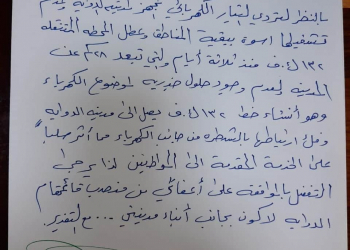 بالنظر لتردي التيار الكهربائي تجهز لمدينة الدواية يتم
تشغيلها اسوة ببقية المناطق وعطل المحطة المتنقله
١٣٢ ك.ف منذ ثلاثة أيام والتي تبعد ٢٨ كم عن
المدينه لعدم وجود حلول جذريه لموضوع الكهرباء
وهو أنشاء خط ١٣٢ ك.ف يصل الى مدينه الدوايه
وفك ارتباطها بالشطره من جانب الكهرباء مما أثر سلباً
على الخدمة المقدمة الى المواطنين لذا يرجى
التفضل بالموافقه على أعفائي من منصب قائمقام
الدوايه لاكون بجانب أبناء مدينتي ... مع التقدير.